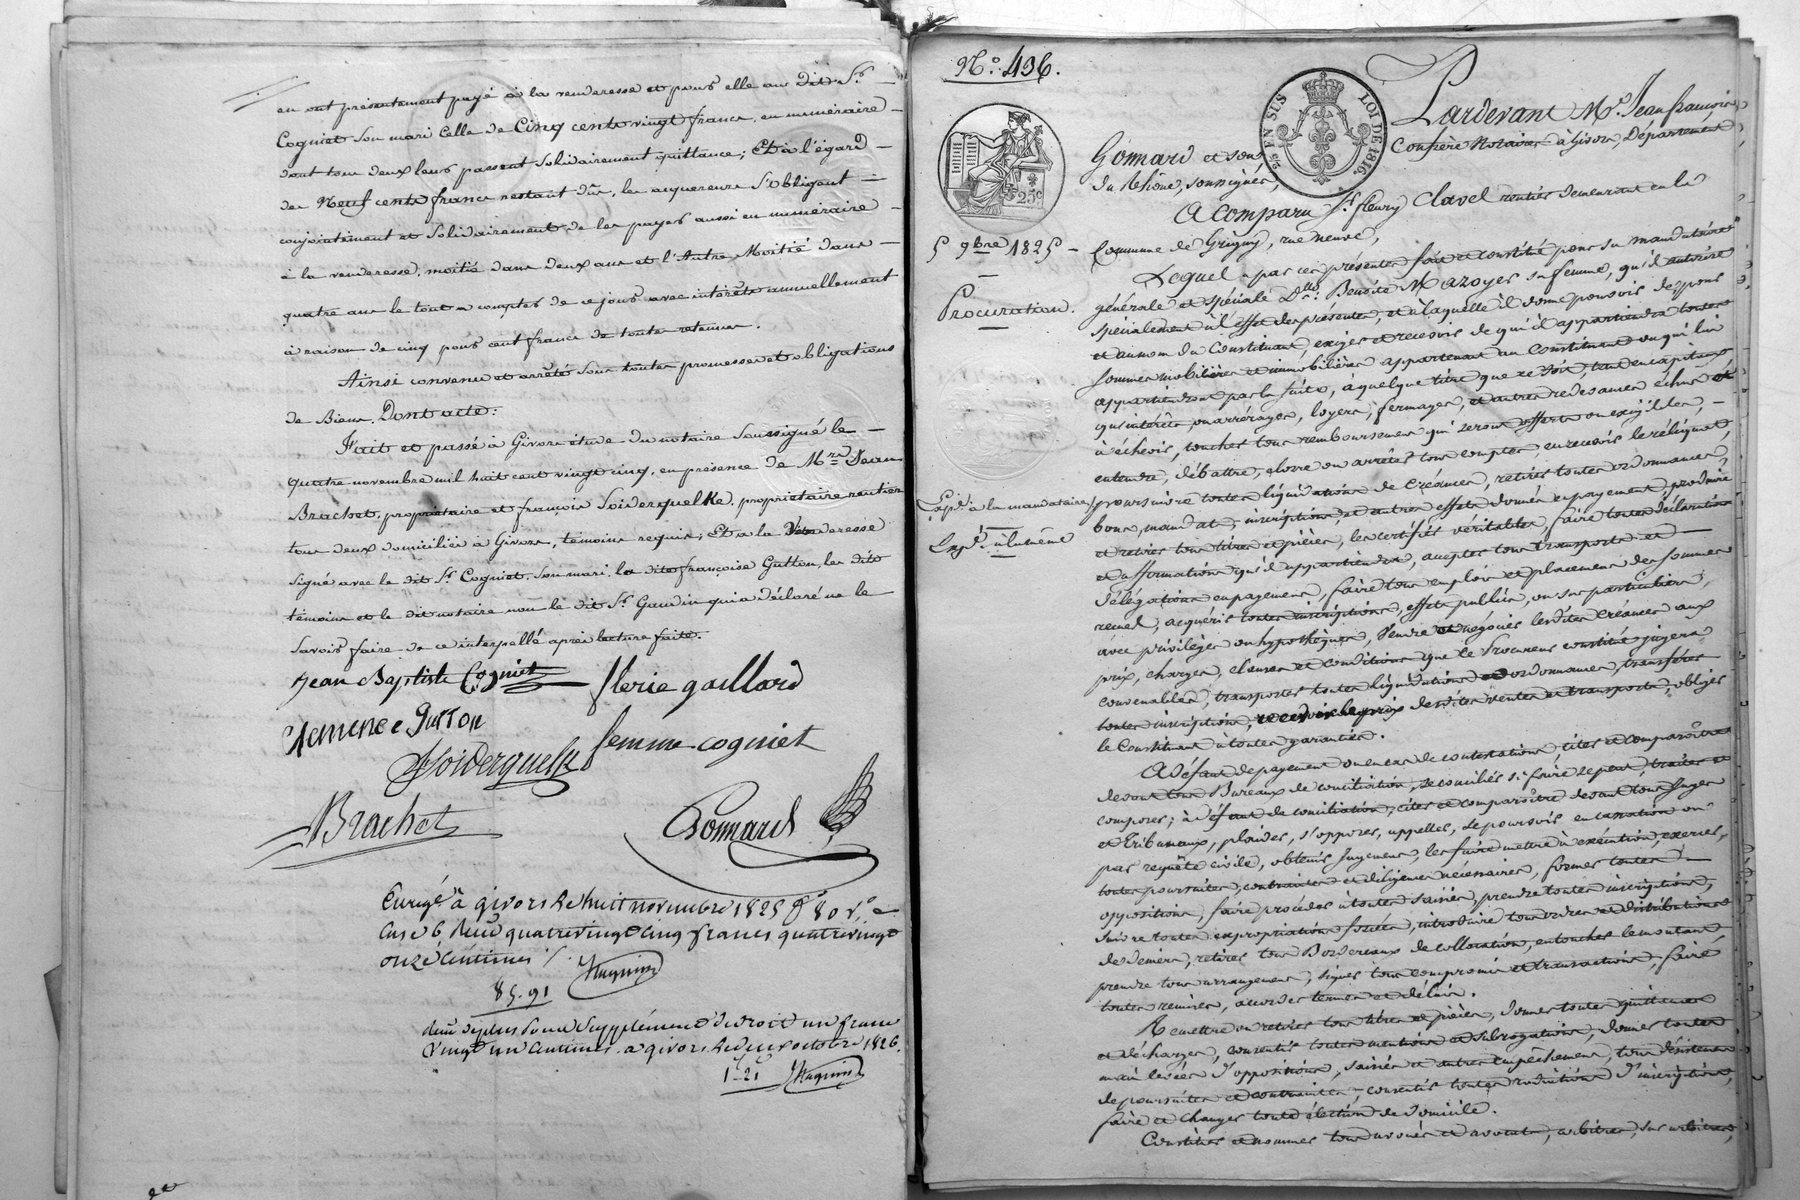 en ont présentement payé à la venderesse et pour elle au dit Sr.
Cogniet son mari celle de Cinq cents vingt francs, en numéraire
dont tous deux leurs passent solidairement quittance; Et à l'égard
des Neuf cents francs restant dûs, les acquereurs s'obligent
conjointement et solidairement de les payer aussi en numéraire
à la venderesse, moitié dans deux ans et l'autre Moitié dans
quatre ans le tout à compter de ce jour avec intérêts annuellement
à raison de cinq pour cent francs de toute retenue.
Ainsi convenu et arrêté sous toutes promesses et obligations
de Biens. Dont acte:
Fait et passé à Givors étude du notaire soussigné le
quatre novembre mil huit cent vingt cinq, en présence de Mre. Jean
Brachet, propriétaire et françois Soiderquelke, propriétaire rentier
tous deux domiciliés à Givors, témoins requis; Et a la Venderesse
signé avec le dit Sr. Cogniet son mari, la dite françoise Gutton, les dits
témoins et le dit notaire non le dit Sr. Gaudin qui a déclaré ne le
savoir faire de ce interpellé après lecture faite.
Jean Baptiste Cogniet flerie gaillard
femme cogniet
Soiderquelk
Brachet Gonnard
Enrgé à givors le huit novembre 1825 fo 80 vo
case 6 Reçu quatrevingt cinq francs quatrevingt
onze centimes
Huguin
85-91
Reçu de plus pour supplément de droit un franc
vingt un centimes. a givors le deux octobre 1826.
1-21 Huguin
No. 436.
EN SUS LOI DE 1816.
25c
Pardevant Me. Jean françois
Gonnard et son Confrère Notaires à Givors, Département
du Rhône, soussignés,
A Comparu Sr. fleury Clavel rentier demeurant en la
5 9bre 1825
Commune de Grigny, rue neuve,
Lequel a par ces présentes fait et constitué pour sa mandataire
Procuration.
générale et spéciale Dlle. Benoîte Mazoyer sa femme, qu'il autorise
spécialement à l'effet des présentes, et à laquelle il donne pouvoir de, pour
et au nom du Constituant, exiger et recevoir de qui il appartiendra toutes
sommes mobilières et immobilières appartenant au Constituant ou qui lui
appartiendront par la suite, à quelque titre que ce soit, tant en capitaux,
qu'intérêts, ou arrérages, loyers, fermages, et autres redevances échus et
à échoir, toucher tous remboursements qui seront offerts ou exigibles,
entendre, débattre, clorre ou arrêter tous comptes, en recevoir le reliquat,
Expé. à la mandataire
poursuivre toutes liquidations de Créances, retirer toutes ordonnances,
bons, mandat, inscriptions, et autres effets donnés en payement, produire
et retirer tous titres et pièces, les certifier veritables, faire toutes déclarations
et affirmations qu'il appartiendra, accepter tous transports et
délégations en payement, faire tous emplois et placements des sommes
reçues, acquérir toutes inscriptions, effets publics, ou sur particuliers,
avec privilèges ou hypothèques, Vendre et négocier lesdites Créances aux
prix, charges, clauses et conditions que le Procureur constitué jugera
convenables, transporter toutes liquidations et ordonnances, transférer
toutes inscriptions, recevoir les prix desdites ventes et transports, obliger
le Constituant à toutes garanties.
A défaut de payement ou en cas de contestations, citer et comparaître
devant tous Bureaux de conciliation, se concilier si faire se peut, traiter et
composer; à défaut de conciliation, citer et comparaître devant tous Juges
et Tribunaux, plaider, s'opposer, appeller, se pourvoir en cassation ou
par requête civile, obtenir Jugement, les faire mettre à exécution, exercer,
toutes poursuites, contraintes et diligences nécessaires, former toutes
oppositions, faire procéder à toutes saisies, prendre toutes inscriptions,
suivre toutes expropriations forcées, introduire tous ordres et distributions
de deniers, retirer tous Bordereaux de collocation, en toucher le montant
prendre tous arrangemens, signer tous compromis et transactions, faire
toutes remises, accorder termes et délais.
Remettre ou retirer tous titres et pièces, donner toutes quittances
et décharges, consentir toutes mentions et subrogations, donner toutes
main levées d'oppositions, saisies et autres empêchemens, tous désistemens
de poursuites et contraintes, consentir toutes radiations d'inscriptions,
faire et changer toute élection de domicile.
Constituer et nommer tous avoués et avocats, arbitres, sur arbitres,